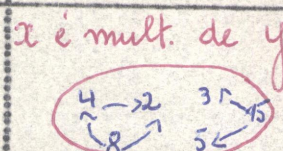 x é mult. de y
4 → 2 3 15
8 5